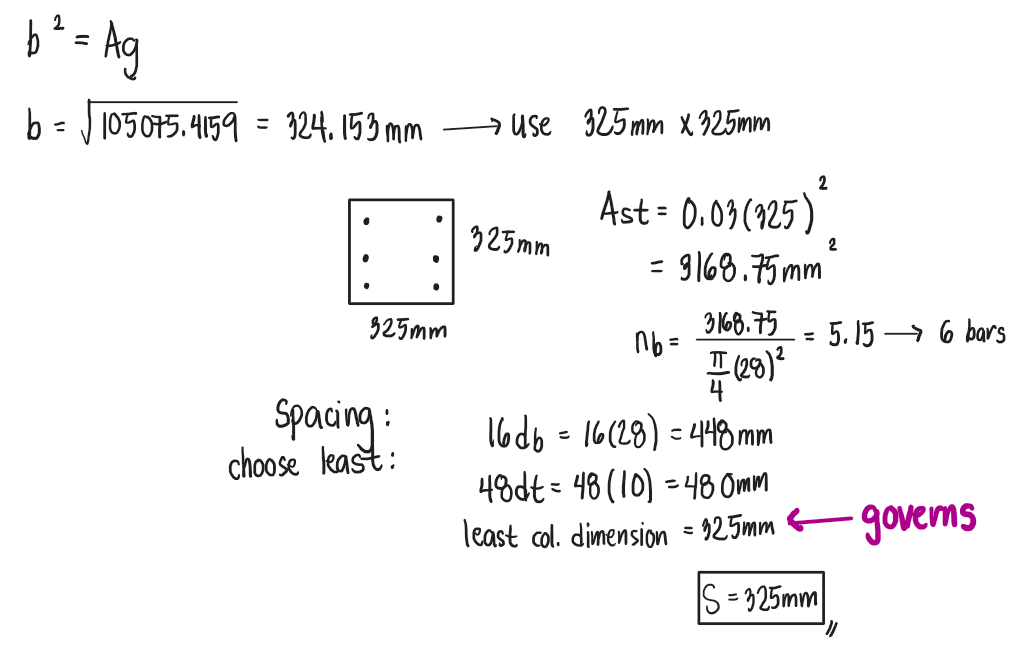 b² = Ag
b = √105075.4159 = 324.153mm ⟶ use 325mm x 325mm
Ast = 0.03(325)²
= 3168.75mm²
325mm
325mm
nb = 3168.75 / (π/4 (28)²) = 5.15 ⟶ 6 bars
Spacing:
choose least:
16db = 16(28) = 448mm
48dt = 48(10) = 480mm
least col. dimension = 325mm ⟵ governs
S = 325mm //